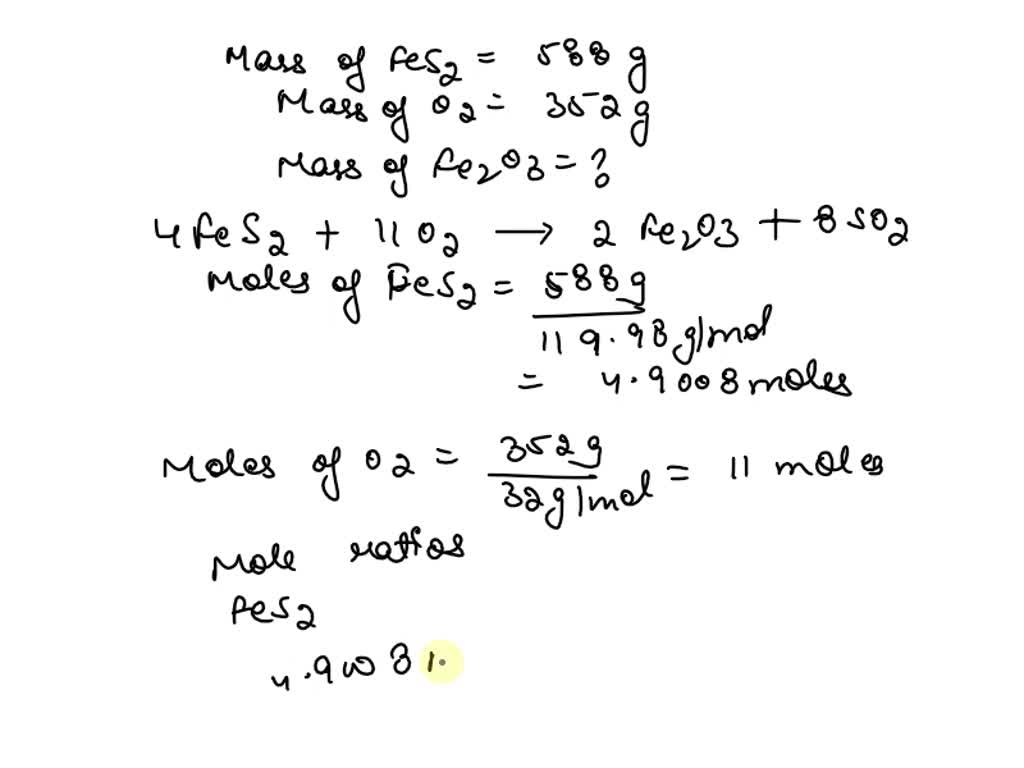 Mass of FeS2 = 588 g
Mass of O2 = 352 g
Mass of Fe2O3 = ?
4 FeS2 + 11 O2 → 2 Fe2O3 + 8 SO2
Moles of FeS2 = 588 g
119.98 g/mol
= 4.9008 moles
Moles of O2 = 352 g / 32 g/mol = 11 moles
Mole ratios
FeS2
4.9008 /.